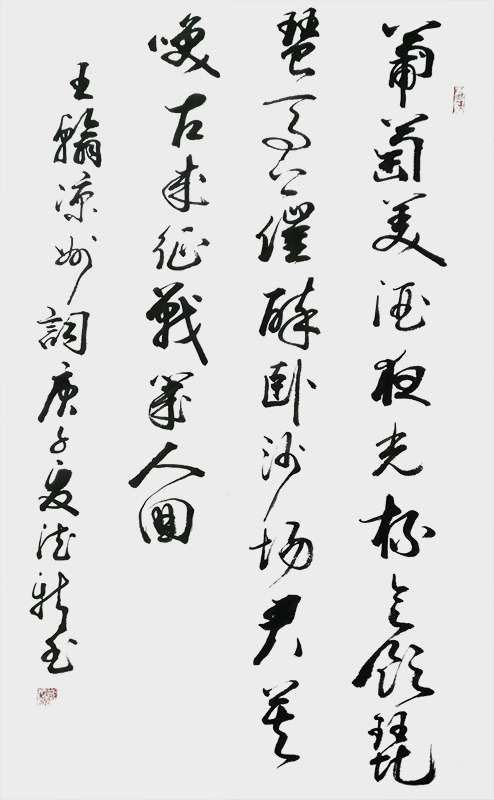 葡萄美酒夜光杯欲飲琵
琶馬上催醉卧沙场君莫
咲古来征戰幾人回
王翰凉州詞庚子夏书